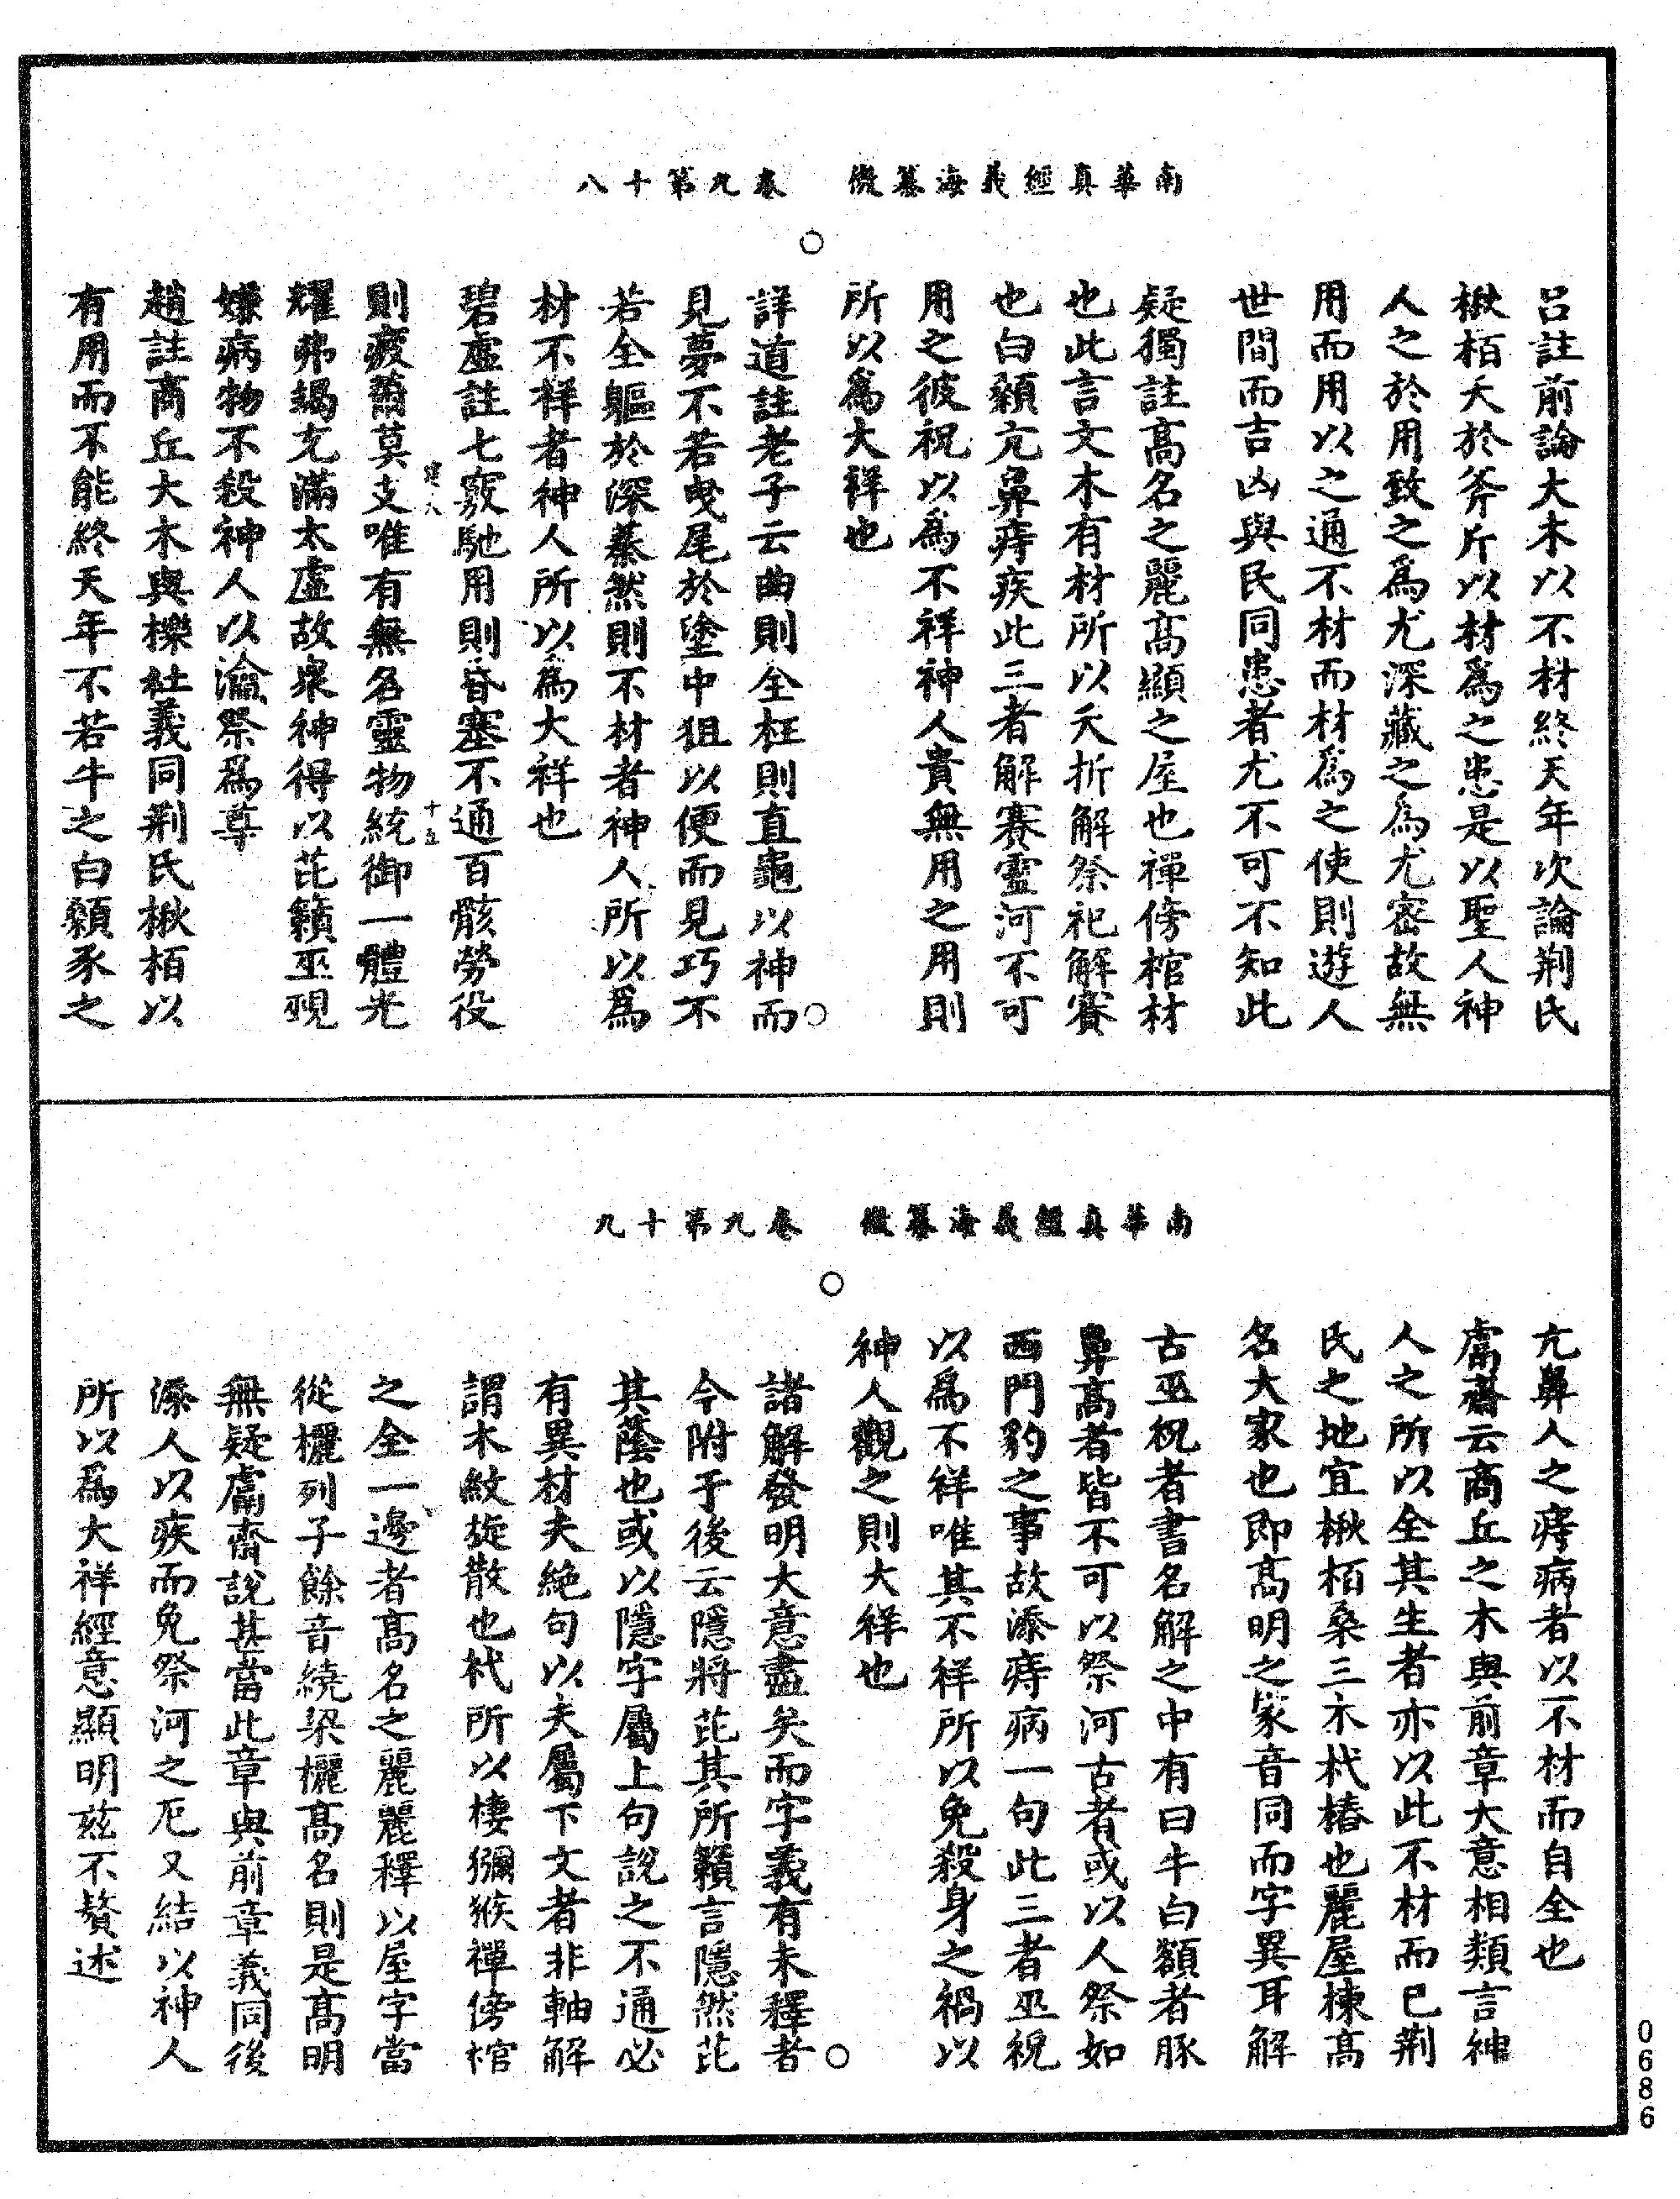 南華真經義海纂微　卷九第十八
呂註前論大木以不材終天年次論荆氏
楸栢夭於斧斤以材爲之患是以聖人神
人之於用致之爲尤深藏之爲尤密故無
用而用以之通不材而材爲之使則遊人
世間而吉凶與民同患者尤不可不知此
疑獨註高名之麗高顯之屋也禪傍棺材
也此言文木有材所以夭折解祭祀解賽
也白顙亢鼻痔疾此三者解賽靈河不可
用之彼祝以爲不祥神人貴無用之用則
所以爲大祥也
詳道註老子云曲則全枉則直龜以神而
見夢不若曳尾於塗中狙以便而見巧不
若全軀於深蓁然則不材者神人所以爲
材不祥者神人所以爲大祥也
碧虛註七竅馳用則昏塞不通百骸勞役
則疲薾莫支唯有無名靈物統御一體光
耀弗竭充滿太虛故泉神得以芘籟巫覡
嫌病物不殺神人以瀹祭爲尊
趙註商丘大木與櫟社義同荆氏楸栢以
有用而不能終天年不若牛之白顙豕之
十五
南華真經義海纂微　卷九第十九
亢鼻人之痔病者以不材而自全也
鬳齋云商丘之木與前章大意相類言神
人之所以全其生者亦以此不材而已荆
氏之地宜楸栢桑三木杙樁也麗屋棟高
名大家也即高明之家音同而字異耳解
古巫祝者書名解之中有曰牛白額者豚
鼻高者皆不可以祭河古者或以人祭如
西門豹之事故添痔病一句此三者巫祝
以爲不祥唯其不祥所以免殺身之禍以
神人觀之則大祥也
諸解發明大意盡矣而字義有未釋者
今附于後云隱將芘其所籟言隱然芘
其蔭也或以隱字屬上句說之不通必
有異材夫絶句以夫屬下文者非軸解
謂木紋旋散也杙所以棲獼猴禪傍棺
之全一邊者高名之麗麗釋以屋字當
從欐列子餘音繞梁欐高名則是高明
無疑鬳齋說甚當此章與前章義同後
添人以疾而免祭河之厄又結以神人
所以爲大祥經意顯明玆不贅述
0686